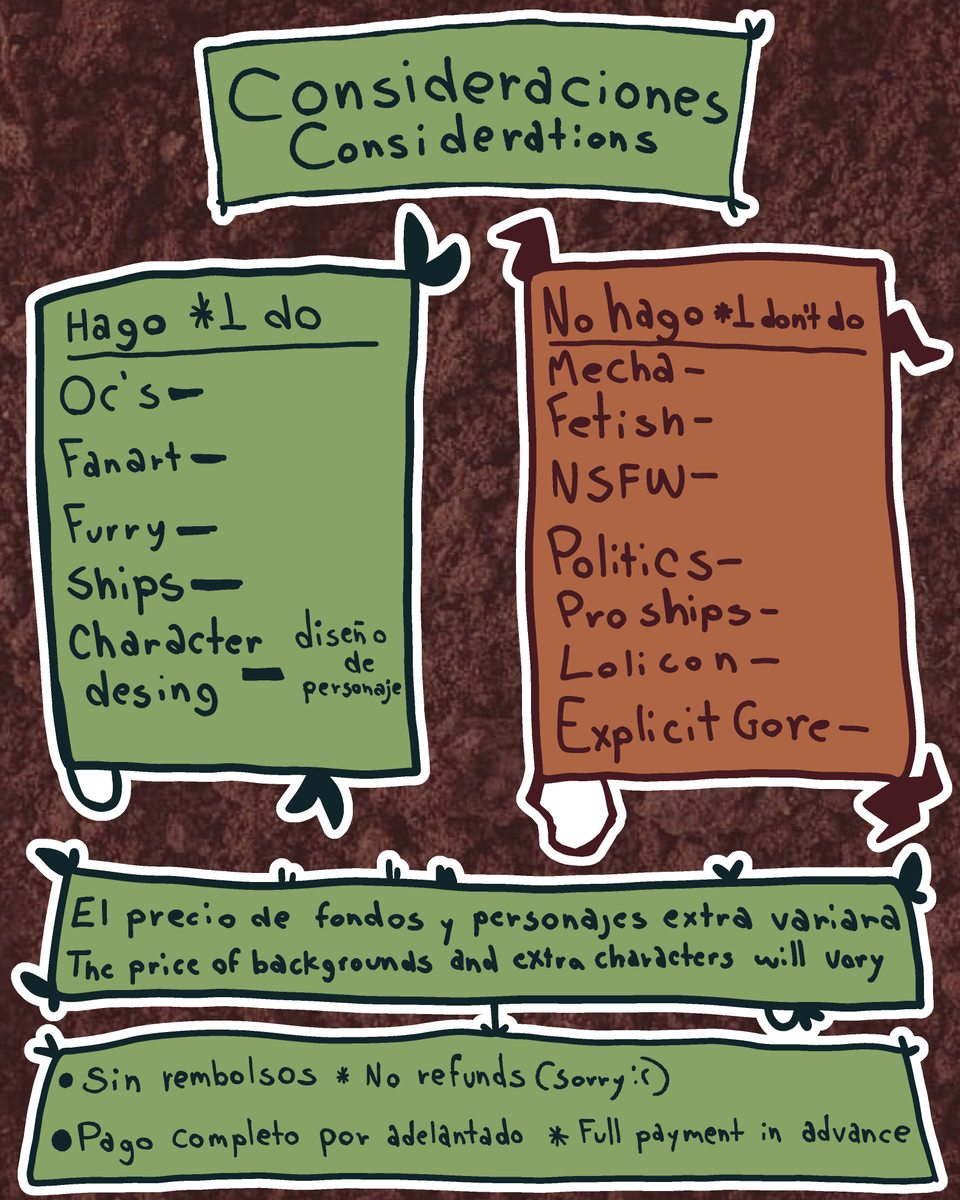 Consideraciones
Considerations
Hago *I do
Oc's-
Fanart-
Furry-
Ships-
Character
desing - diseño
de
personaje
No hago *I don't do
Mecha-
Fetish-
NSFW-
Politics-
Pro ships-
Lolicon-
Explicit Gore-
El precio de fondos y personajes extra variara
The price of backgrounds and extra characters will vary
•Sin rembolsos * No refunds (sorry :'()
•Pago completo por adelantado * Full payment in advance